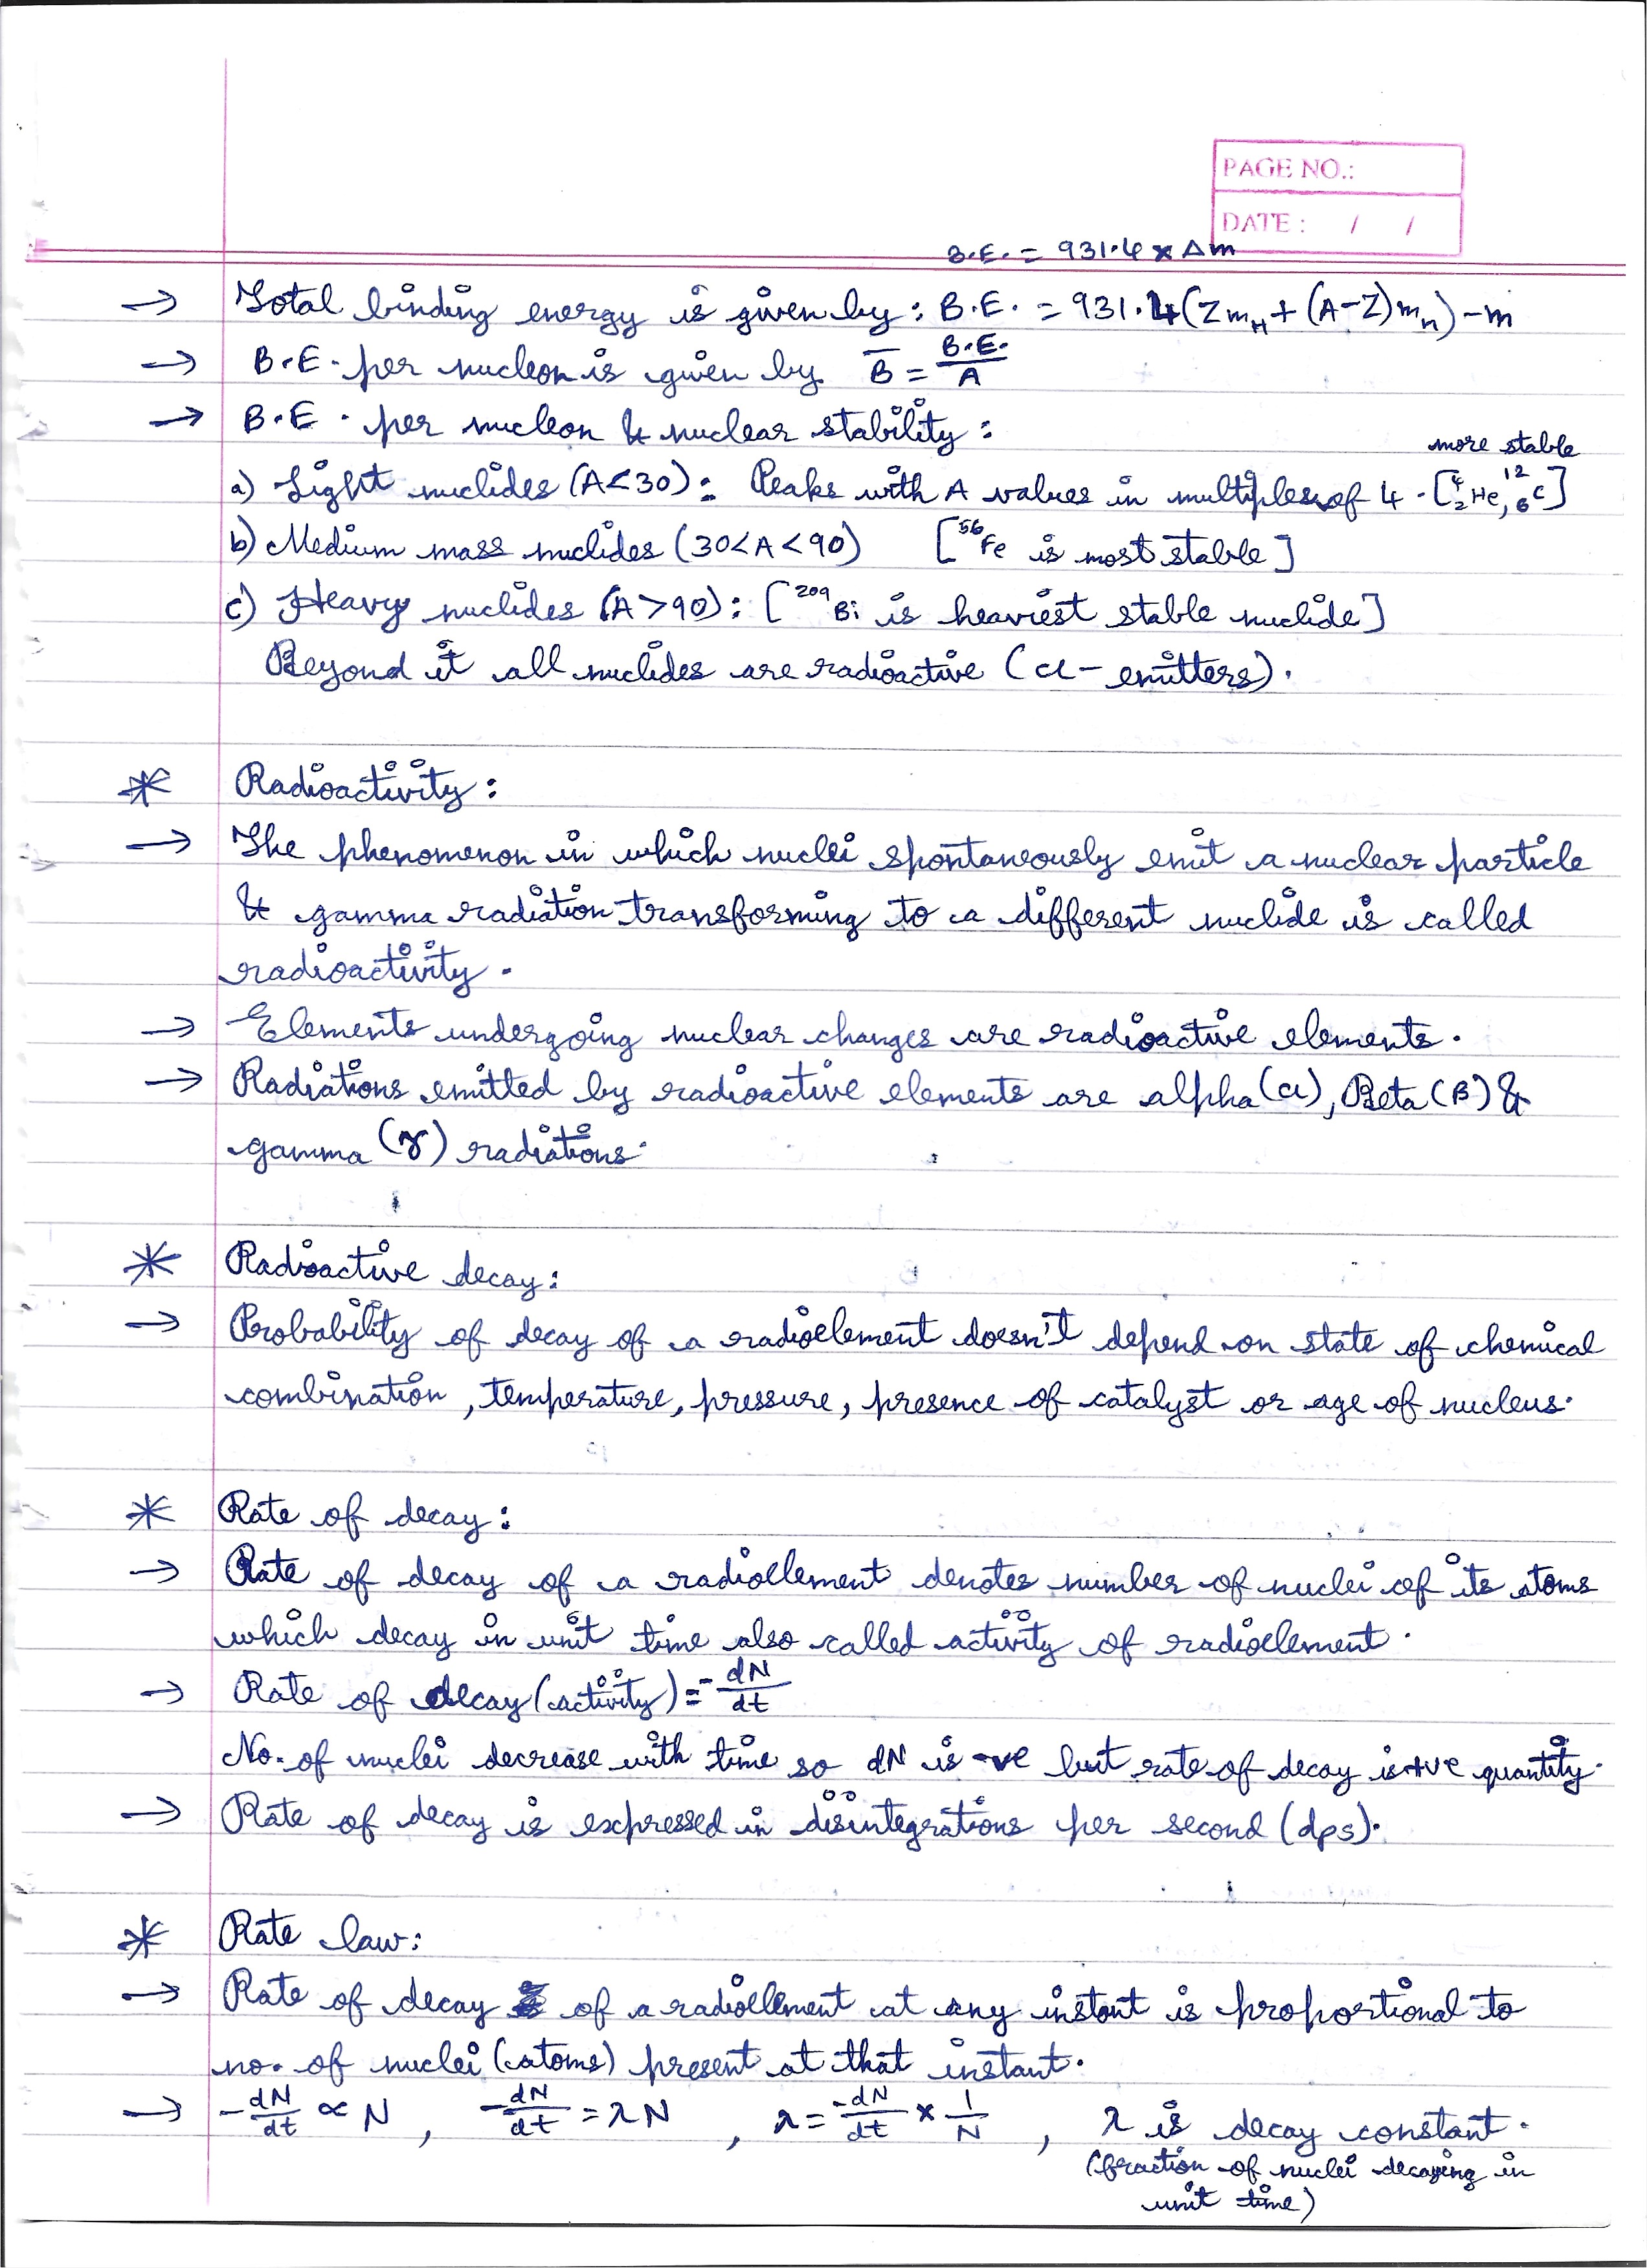 PAGE NO.:
DATE : / /
B.E. = 931.4 × Δm
→ Total binding energy is given by : B.E. = 931.4(Zm_H + (A-Z)m_n) - m
→ B.E. per nucleon is given by B̅ = B.E./A
→ B.E. per nucleon & nuclear stability :
more stable
a) Light nuclides (A<30) : Peaks with A values in multiples of 4. [⁴₂He, ¹²₆C]
b) Medium mass nuclides (30<A<90) [⁵⁶Fe is most stable]
c) Heavy nuclides (A>90) : [²⁰⁹Bi is heaviest stable nuclide]
Beyond it all nuclides are radioactive (α- emitters).
* Radioactivity :
→ The phenomenon in which nuclei spontaneously emit a nuclear particle
& gamma radiation transforming to a different nuclide is called
radioactivity.
→ Elements undergoing nuclear changes are radioactive elements.
→ Radiations emitted by radioactive elements are alpha (α), Beta (β) &
gamma (γ) radiations.
* Radioactive decay :
→ Probability of decay of a radioelement doesn't depend on state of chemical
combination, temperature, pressure, presence of catalyst or age of nucleus.
* Rate of decay :
→ Rate of decay of a radioelement denotes number of nuclei of its atoms
which decay in unit time also called activity of radioelement.
→ Rate of decay (activity) = -dN/dt
No. of nuclei decrease with time so dN is -ve but rate of decay is +ve quantity.
→ Rate of decay is expressed in disintegrations per second (dps).
* Rate law :
→ Rate of decay of a radioelement at any instant is proportional to
no. of nuclei (atoms) present at that instant.
→ -dN/dt ∝ N , -dN/dt = λN , λ = -dN/dt × 1/N , λ is decay constant.
(fraction of nuclei decaying in
unit time)